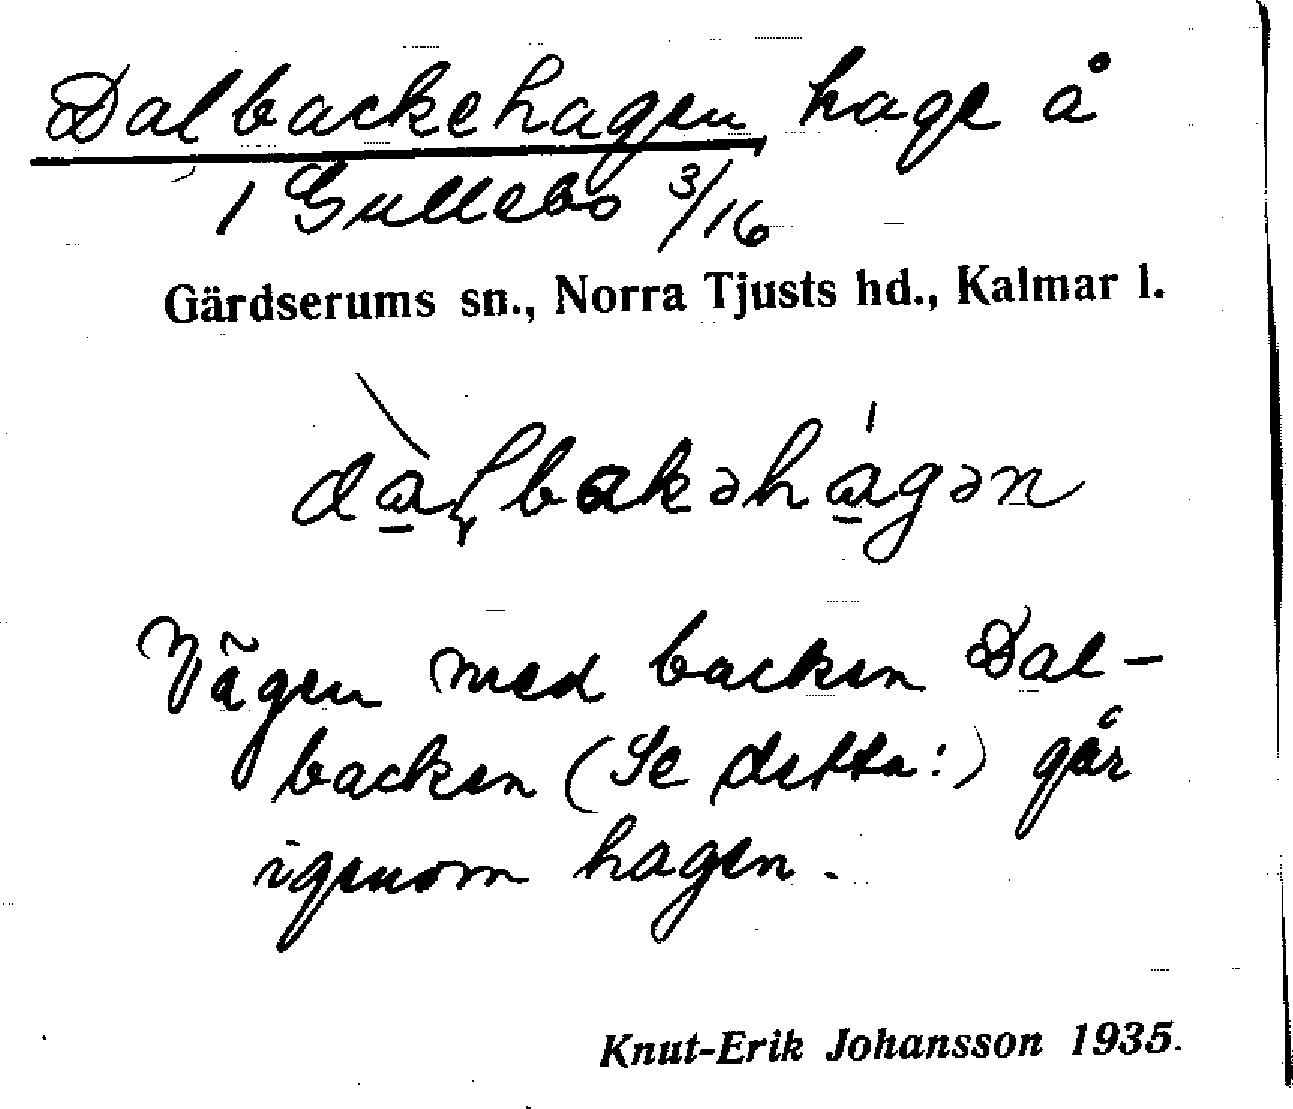 Dalbackehagen, hage å
1 Gullebo 3/16
Gärdserums sn., Norra Tjusts hd., Kalmar l.
dàlbakəhágən
Vägen med backen Dal-
backen (Se detta!) går
igenom hagen.
Knut-Erik Johansson 1935.